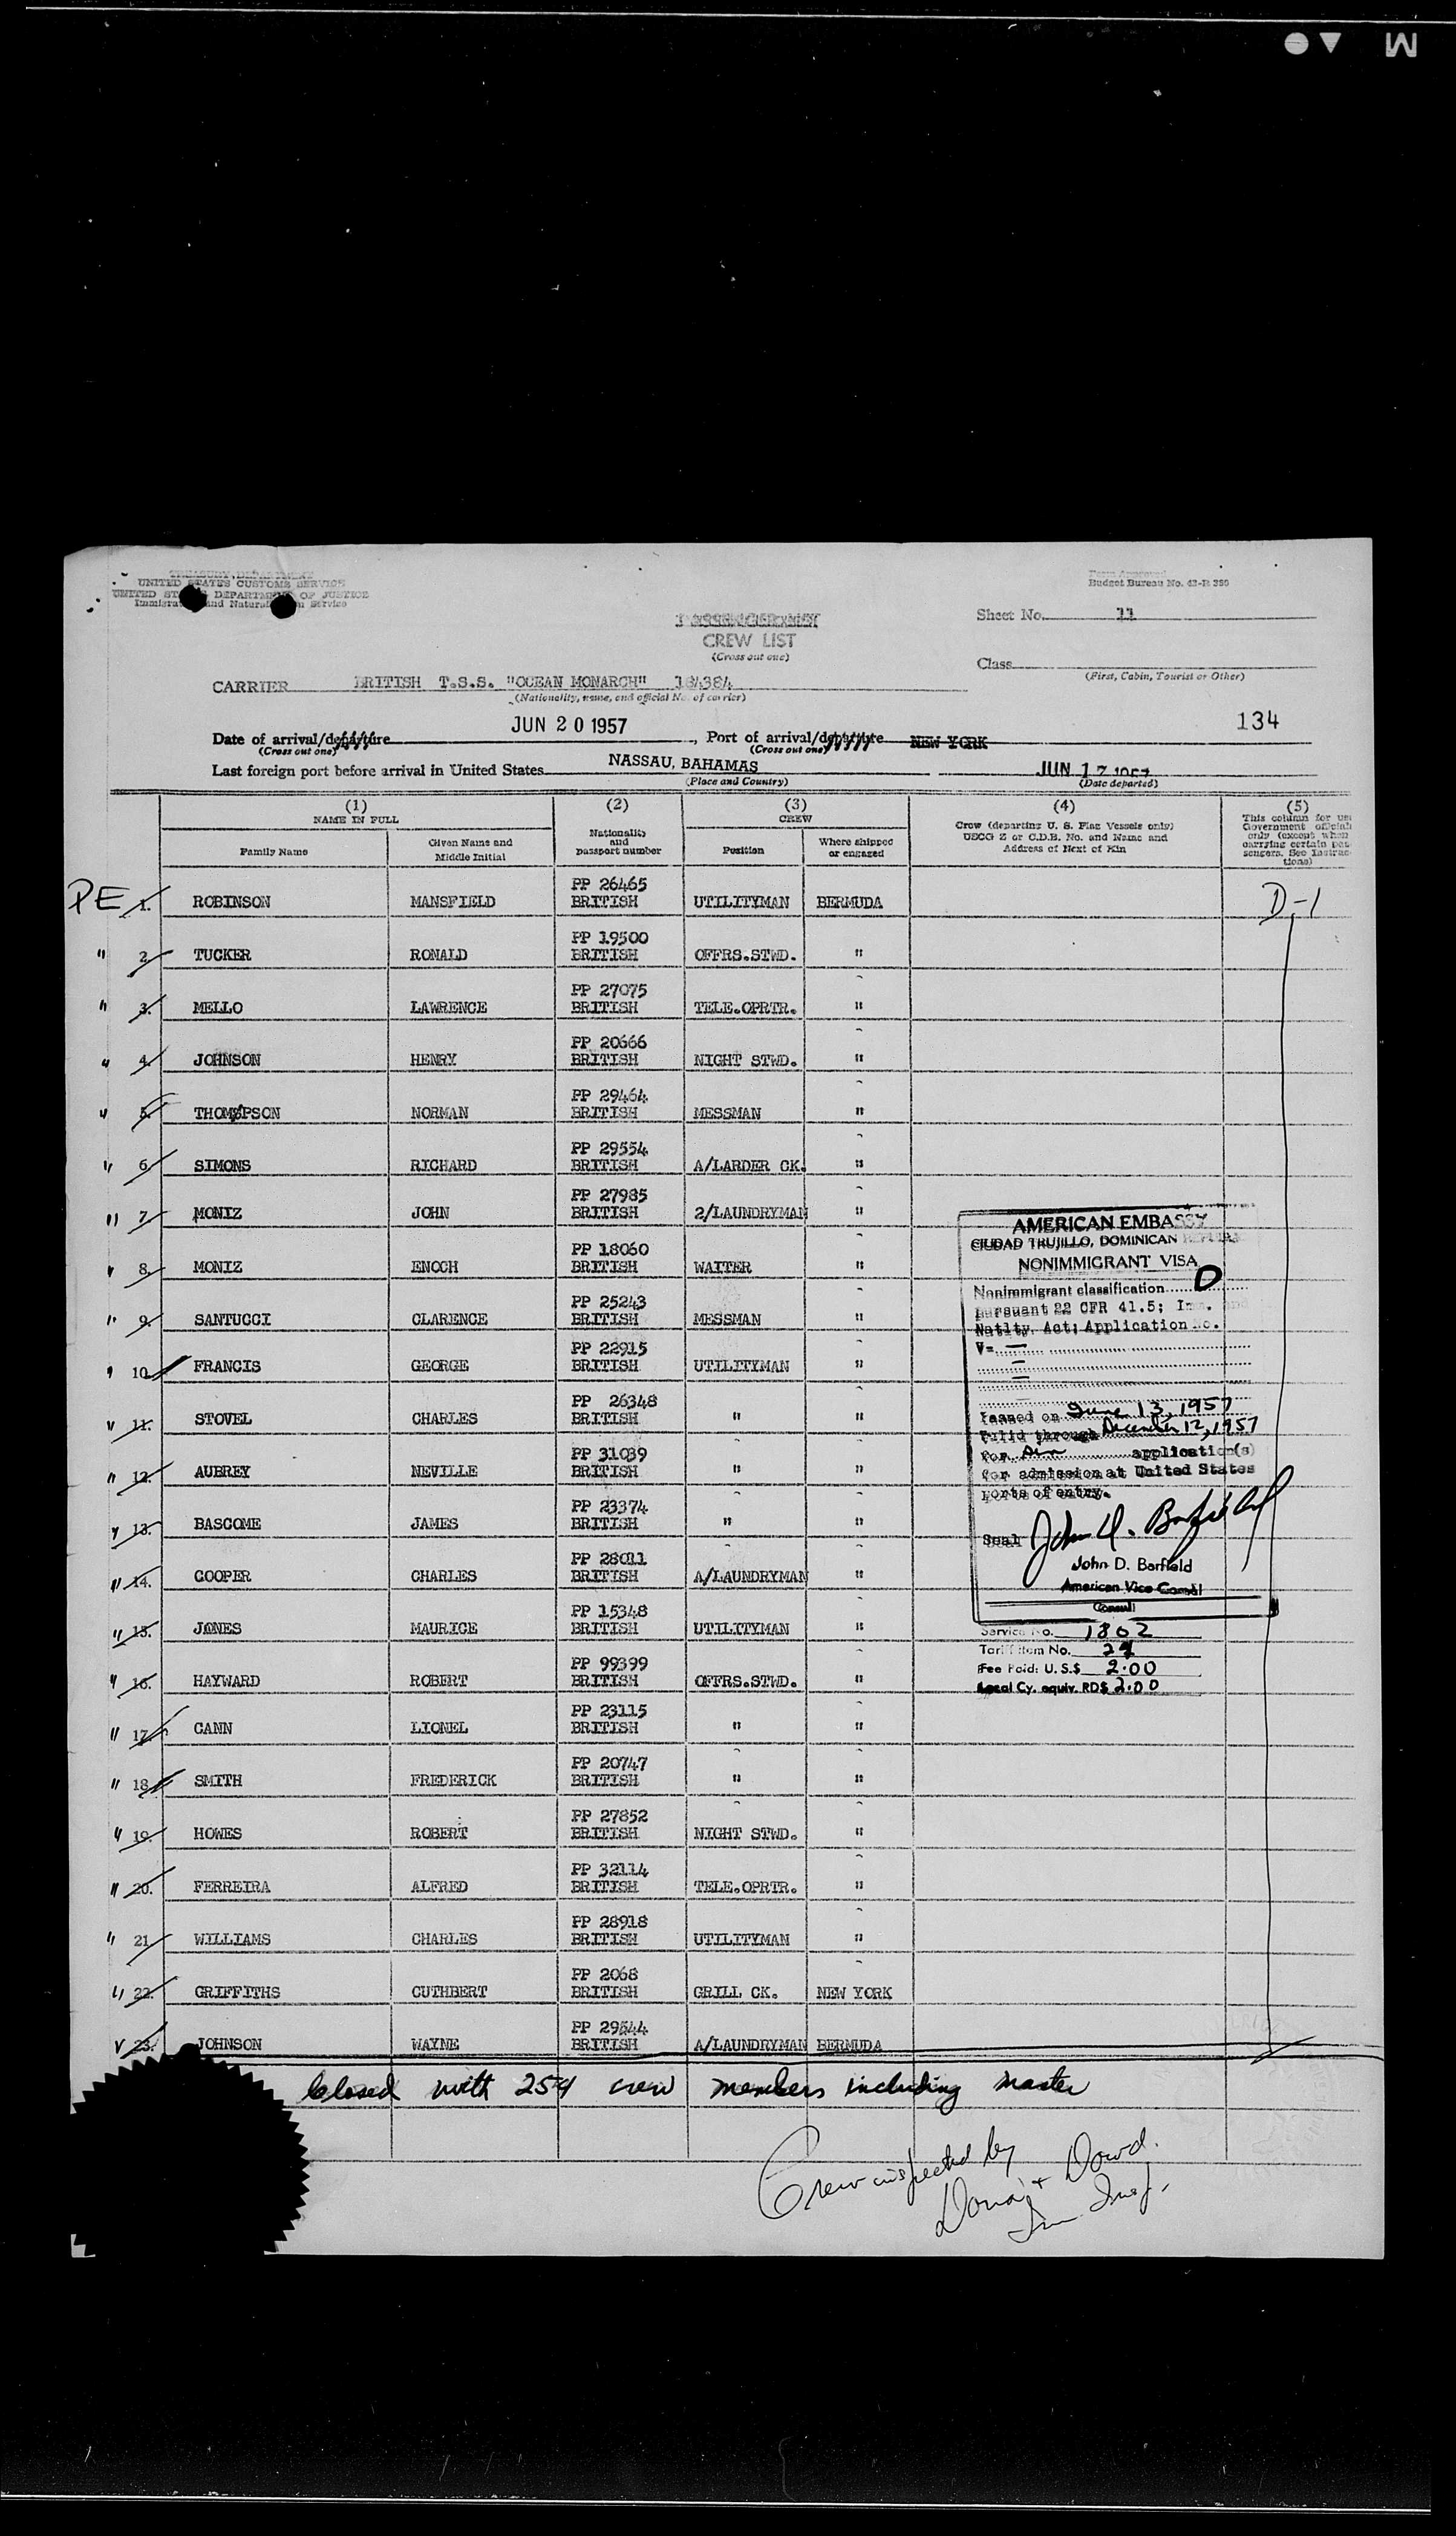 TREASURY DEPARTMENT
UNITED STATES CUSTOMS SERVICE
UNITED STATES DEPARTMENT OF JUSTICE
Immigration and Naturalization Service
Form Approved
Budget Bureau No. 43-R 380
Sheet No. 11
CREW LIST
(Cross out one)
Class
(First, Cabin, Tourist or Other)
CARRIER BRITISH T.S.S. "OCEAN MONARCH" 184384
(Nationality, name, and official No. of carrier)
134
Date of arrival/departure JUN 20 1957, Port of arrival/departure NEW YORK
(Cross out one) (Cross out one)
Last foreign port before arrival in United States NASSAU, BAHAMAS JUN 17 1957
(Place and Country) (Date departed)
(1) (2) (3) (4) (5)
NAME IN FULL CREW
Family Name Given Name and Middle Initial Nationality and passport number Position Where shipped or engaged
Crew (departing U. S. Flag Vessels only)
USCG Z or C.D.B. No. and Name and
Address of Next of Kin
This column for use
Government officials
only (except when
carrying certain pas-
sengers. See Instruc-
tions)
PP 26465
PE 1. ROBINSON MANSFIELD BRITISH UTILITYMAN BERMUDA D-1
PP 19500
" 2 TUCKER RONALD BRITISH OFFRS.STWD. "
PP 27075
" 3. MELLO LAWRENCE BRITISH TELE.OPRTR. "
PP 20666
" 4. JOHNSON HENRY BRITISH NIGHT STWD. "
PP 29464
" 5. THOMPSON NORMAN BRITISH MESSMAN "
PP 29554
" 6. SIMONS RICHARD BRITISH A/LARDER CK. "
PP 27985
" 7. MONIZ JOHN BRITISH 2/LAUNDRYMAN "
PP 18060
" 8. MONIZ ENOCH BRITISH WAITER "
PP 25243
" 9. SANTUCCI CLARENCE BRITISH MESSMAN "
PP 22915
" 10. FRANCIS GEORGE BRITISH UTILITYMAN "
PP 26348
" 11. STOVEL CHARLES BRITISH " "
PP 31039
" 12. AUBREY NEVILLE BRITISH " "
PP 23374
" 13. BASCOME JAMES BRITISH " "
PP 28011
" 14. COOPER CHARLES BRITISH A/LAUNDRYMAN "
PP 15348
" 15. JONES MAURICE BRITISH UTILITYMAN "
PP 99399
" 16. HAYWARD ROBERT BRITISH OFFRS.STWD. "
PP 23115
" 17. CANN LIONEL BRITISH " "
PP 20747
" 18 SMITH FREDERICK BRITISH " "
PP 27852
" 19. HOWES ROBERT BRITISH NIGHT STWD. "
PP 32114
" 20. FERREIRA ALFRED BRITISH TELE.OPRTR. "
PP 28918
" 21 WILLIAMS CHARLES BRITISH UTILITYMAN "
PP 2068
" 22. GRIFFITHS CUTHBERT BRITISH GRILL CK. NEW YORK
PP 29544
" 23. JOHNSON WAYNE BRITISH A/LAUNDRYMAN BERMUDA
AMERICAN EMBASSY
CIUDAD TRUJILLO, DOMINICAN REPUBLIC
NONIMMIGRANT VISA
Nonimmigrant classification D
pursuant 22 CFR 41.5; Imm. and
Natlty. Act; Application No.
V-
Issued on June 13, 1957
Valid through December 12, 1957
for application(s)
for admission at United States
ports of entry.
Seal John D. Barfield
John D. Barfield
American Vice Consul
(Consul)
Service No. 1802
Tariff Item No.
Fee Paid: U.S.$ 2.00
Local Cy. equiv. RD$ 2.00
Closed with 254 crew members including master
Crew inspected by
+ Dowd.
Imm Insp.
M